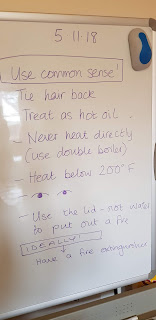 5 11.18
Use common sense!
- Tie hair back
- Treat as hot oil.
- Never heat directly
(use double boiler)
- Heat below 200°F
-
- Use the lid - not water
to put out a fire
IDEALLY!
Have a fire extinguisher